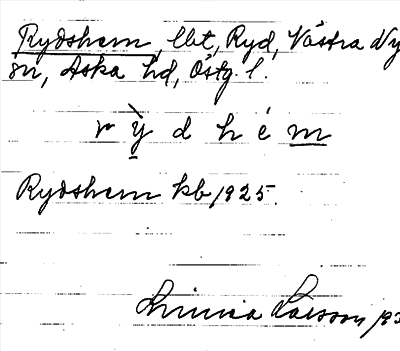 Rydshem, lht, Ryd, Västra Ny
sn, Aska hd, Östg. l.
r ỳ d h é m
Rydshem kb 1925.
Linnea Larsson 193